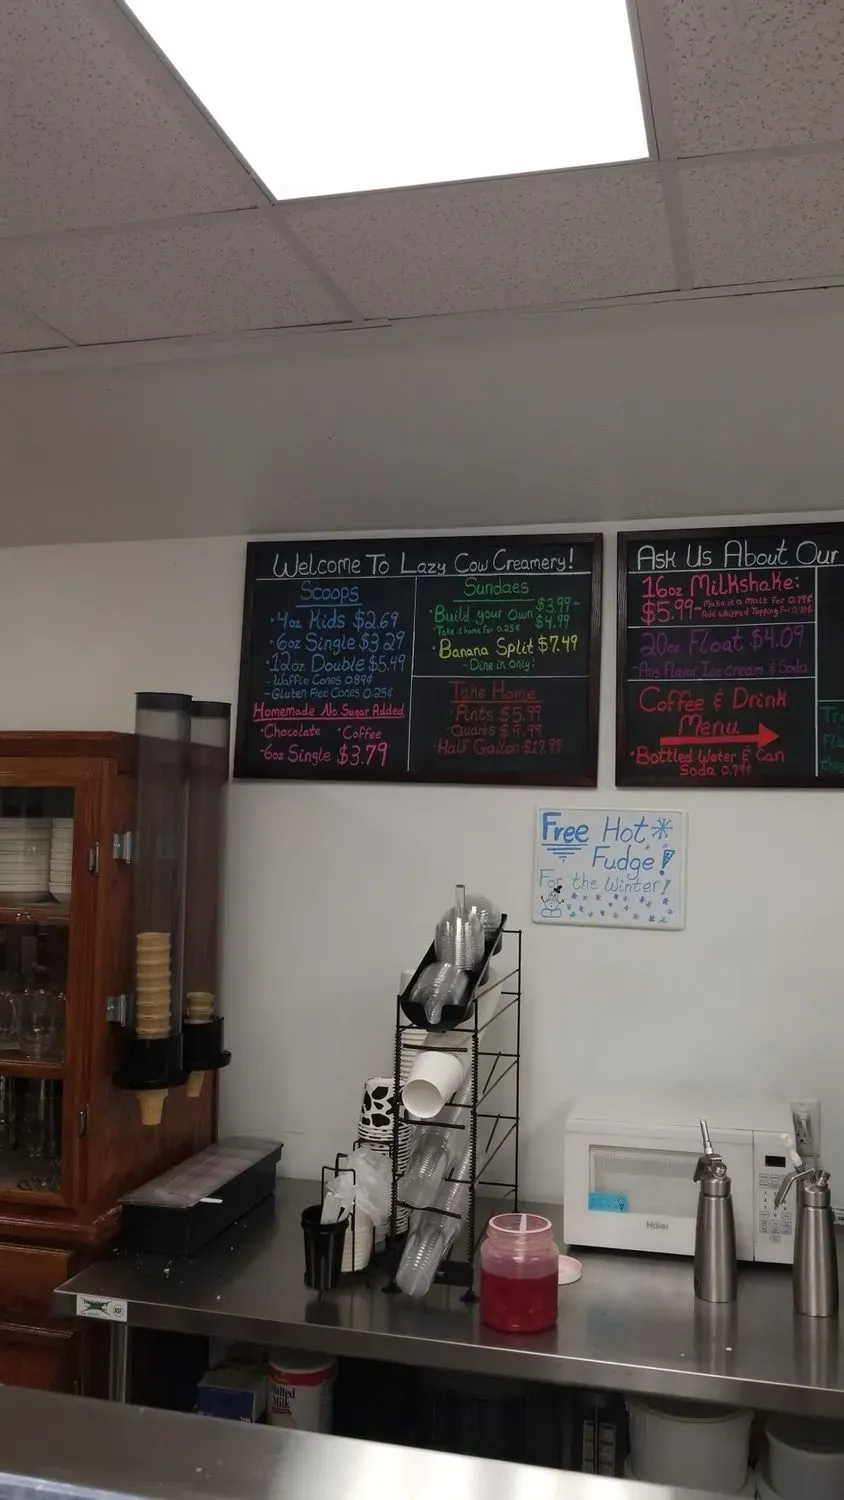 Welcome To Lazy Cow Creamery!
Scoops
• 4oz Kids $2.69
• 6oz Single $3.29
• 12oz Double $5.49
- Waffle Cones 0.89¢
- Gluten Free Cones 0.25¢
Homemade No Sugar Added
• Chocolate • Coffee
- 6oz Single $3.79
Sundaes
• Build your Own $3.99-
$4.99
- Take it home for 0.25¢
• Banana Split $7.49
- Dine in Only!
Take Home
• Pints $5.99
• Quarts $9.99
• Half Gallon
Ask Us About Our
16oz Milkshake:
$5.99 - Make it a Malt For 0.79¢
- Add Whipped Topping For
20oz Float $4.09
- Any Flavor Ice Cream & Soda
Coffee & Drink
Menu
• Bottled Water & Can
Soda 0.79¢
Free Hot
Fudge!
For the Winter!
Haier
NSF
Malted
Milk